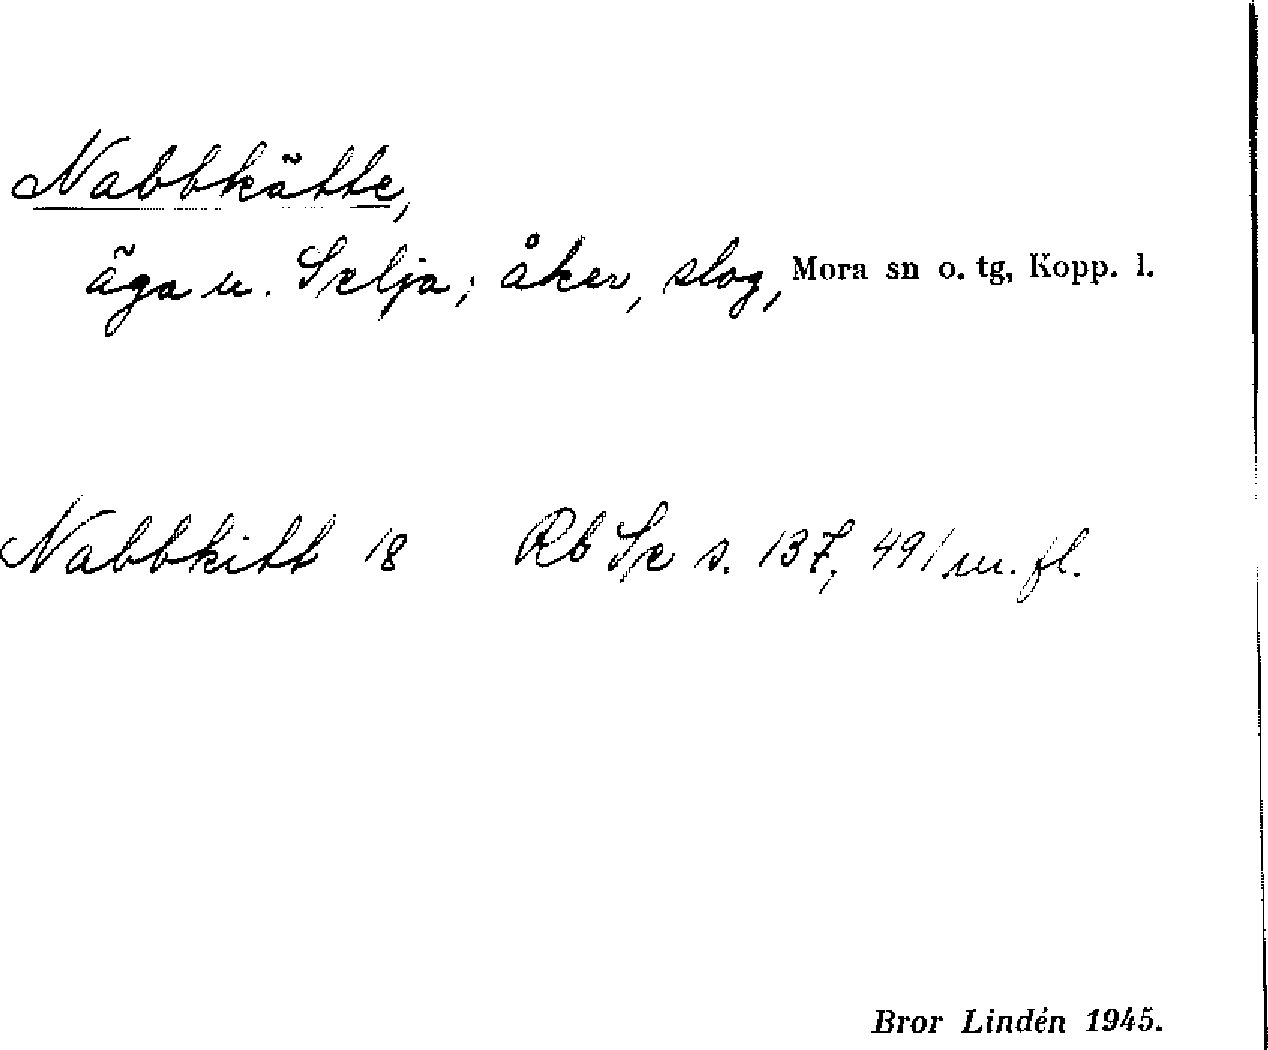 Nabbkätte,
äga u. Selja; åker, slog, Mora sn o. tg, Kopp. l.
Nabbkitt 18 Rb Se s. 137, 491 m. fl.
Bror Lindén 1945.